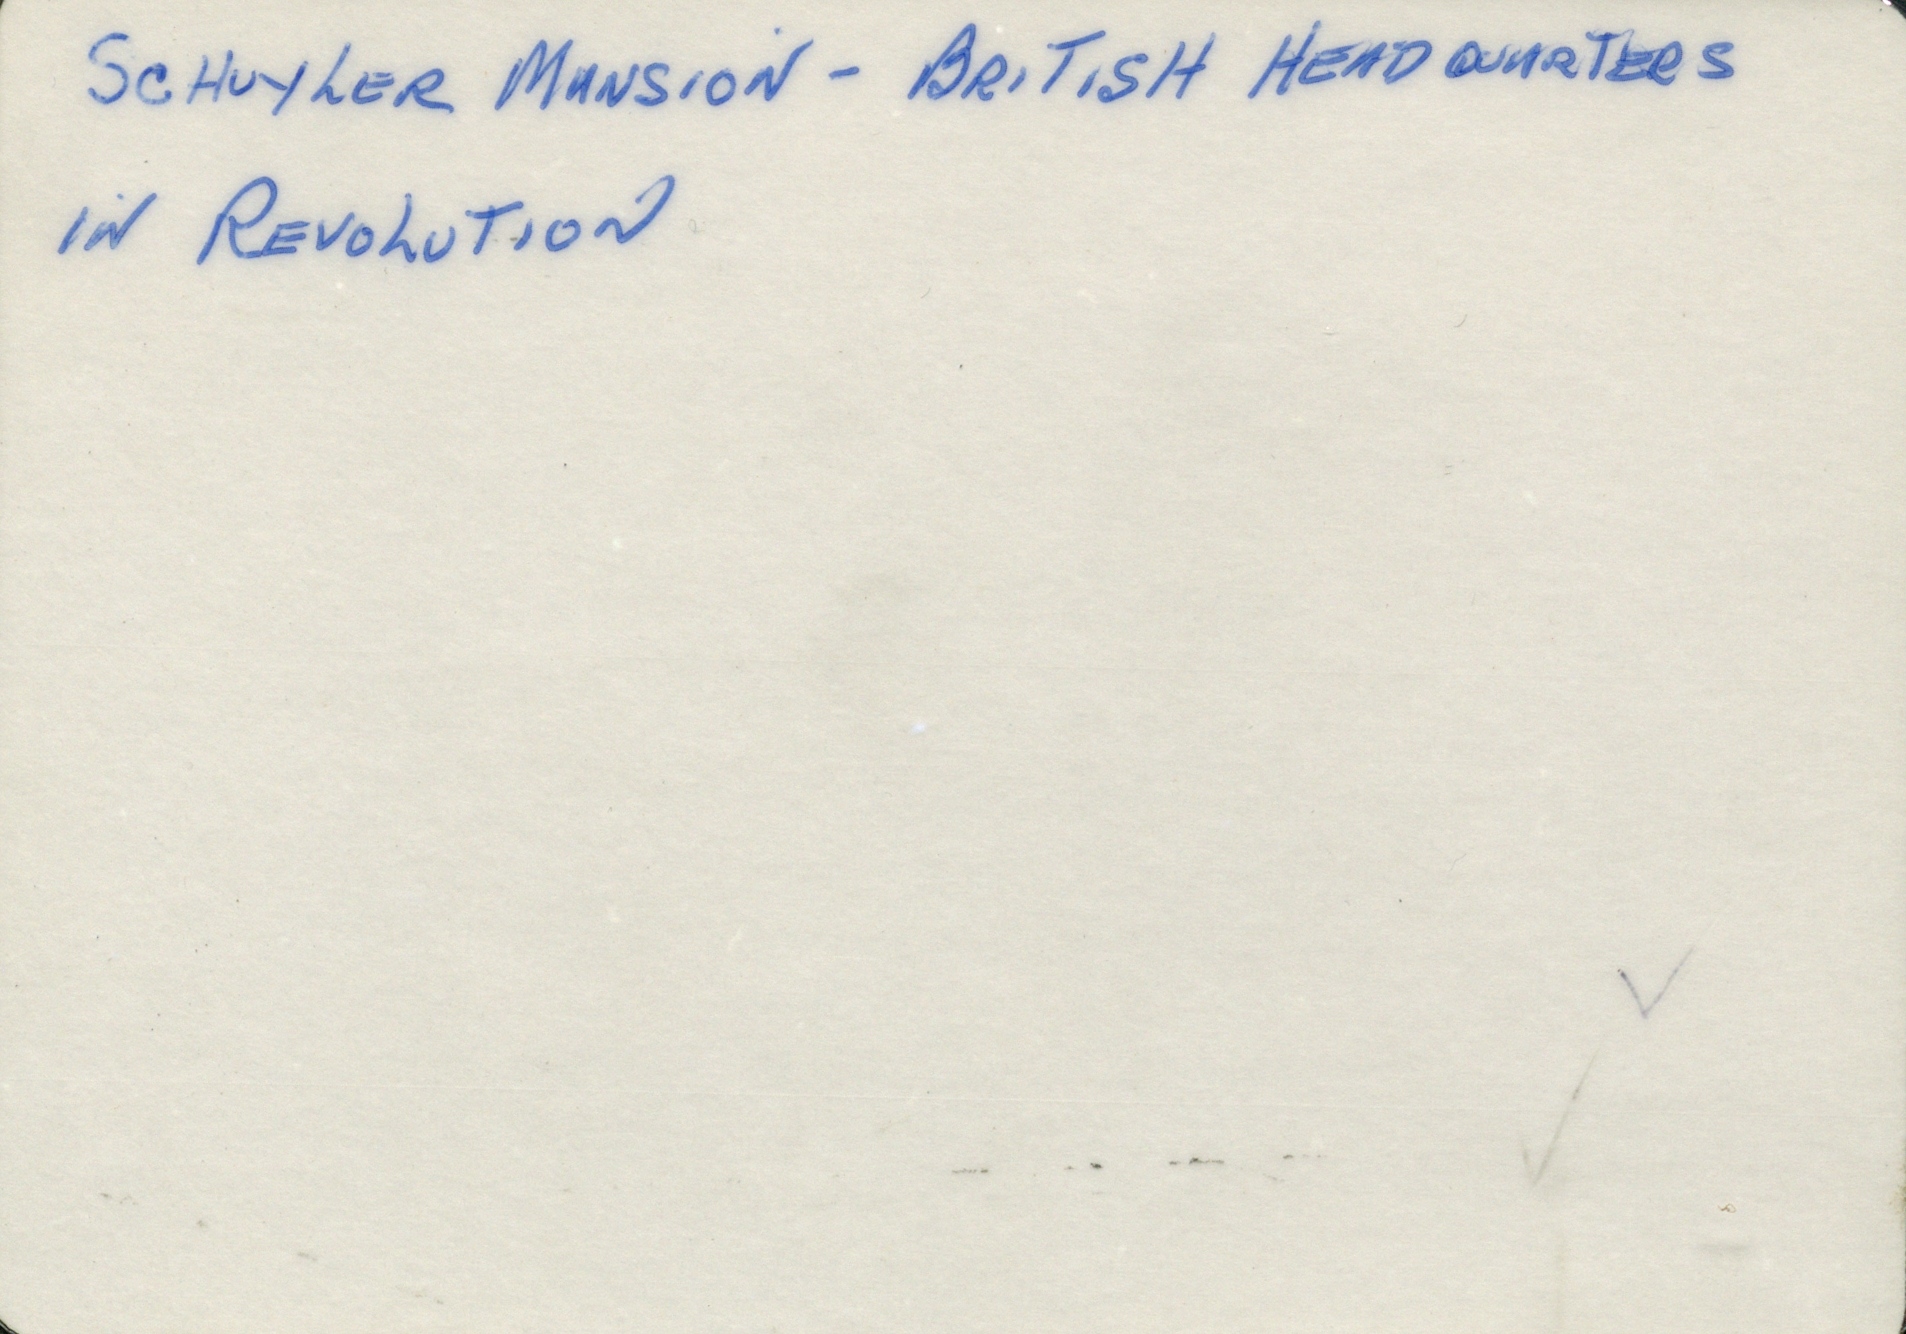 SCHUYLER MANSION - BRITISH HEADQUARTERS
IN REVOLUTION